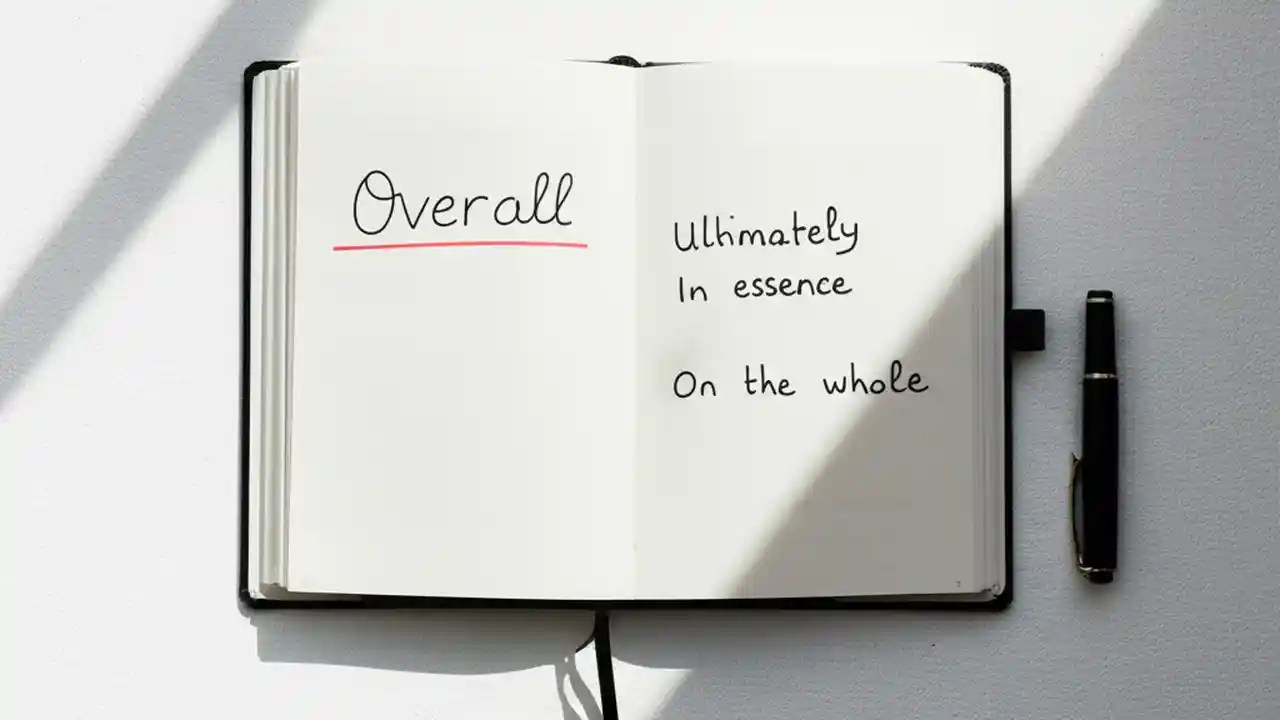 Overall
Ultimately
In essence
On the whole